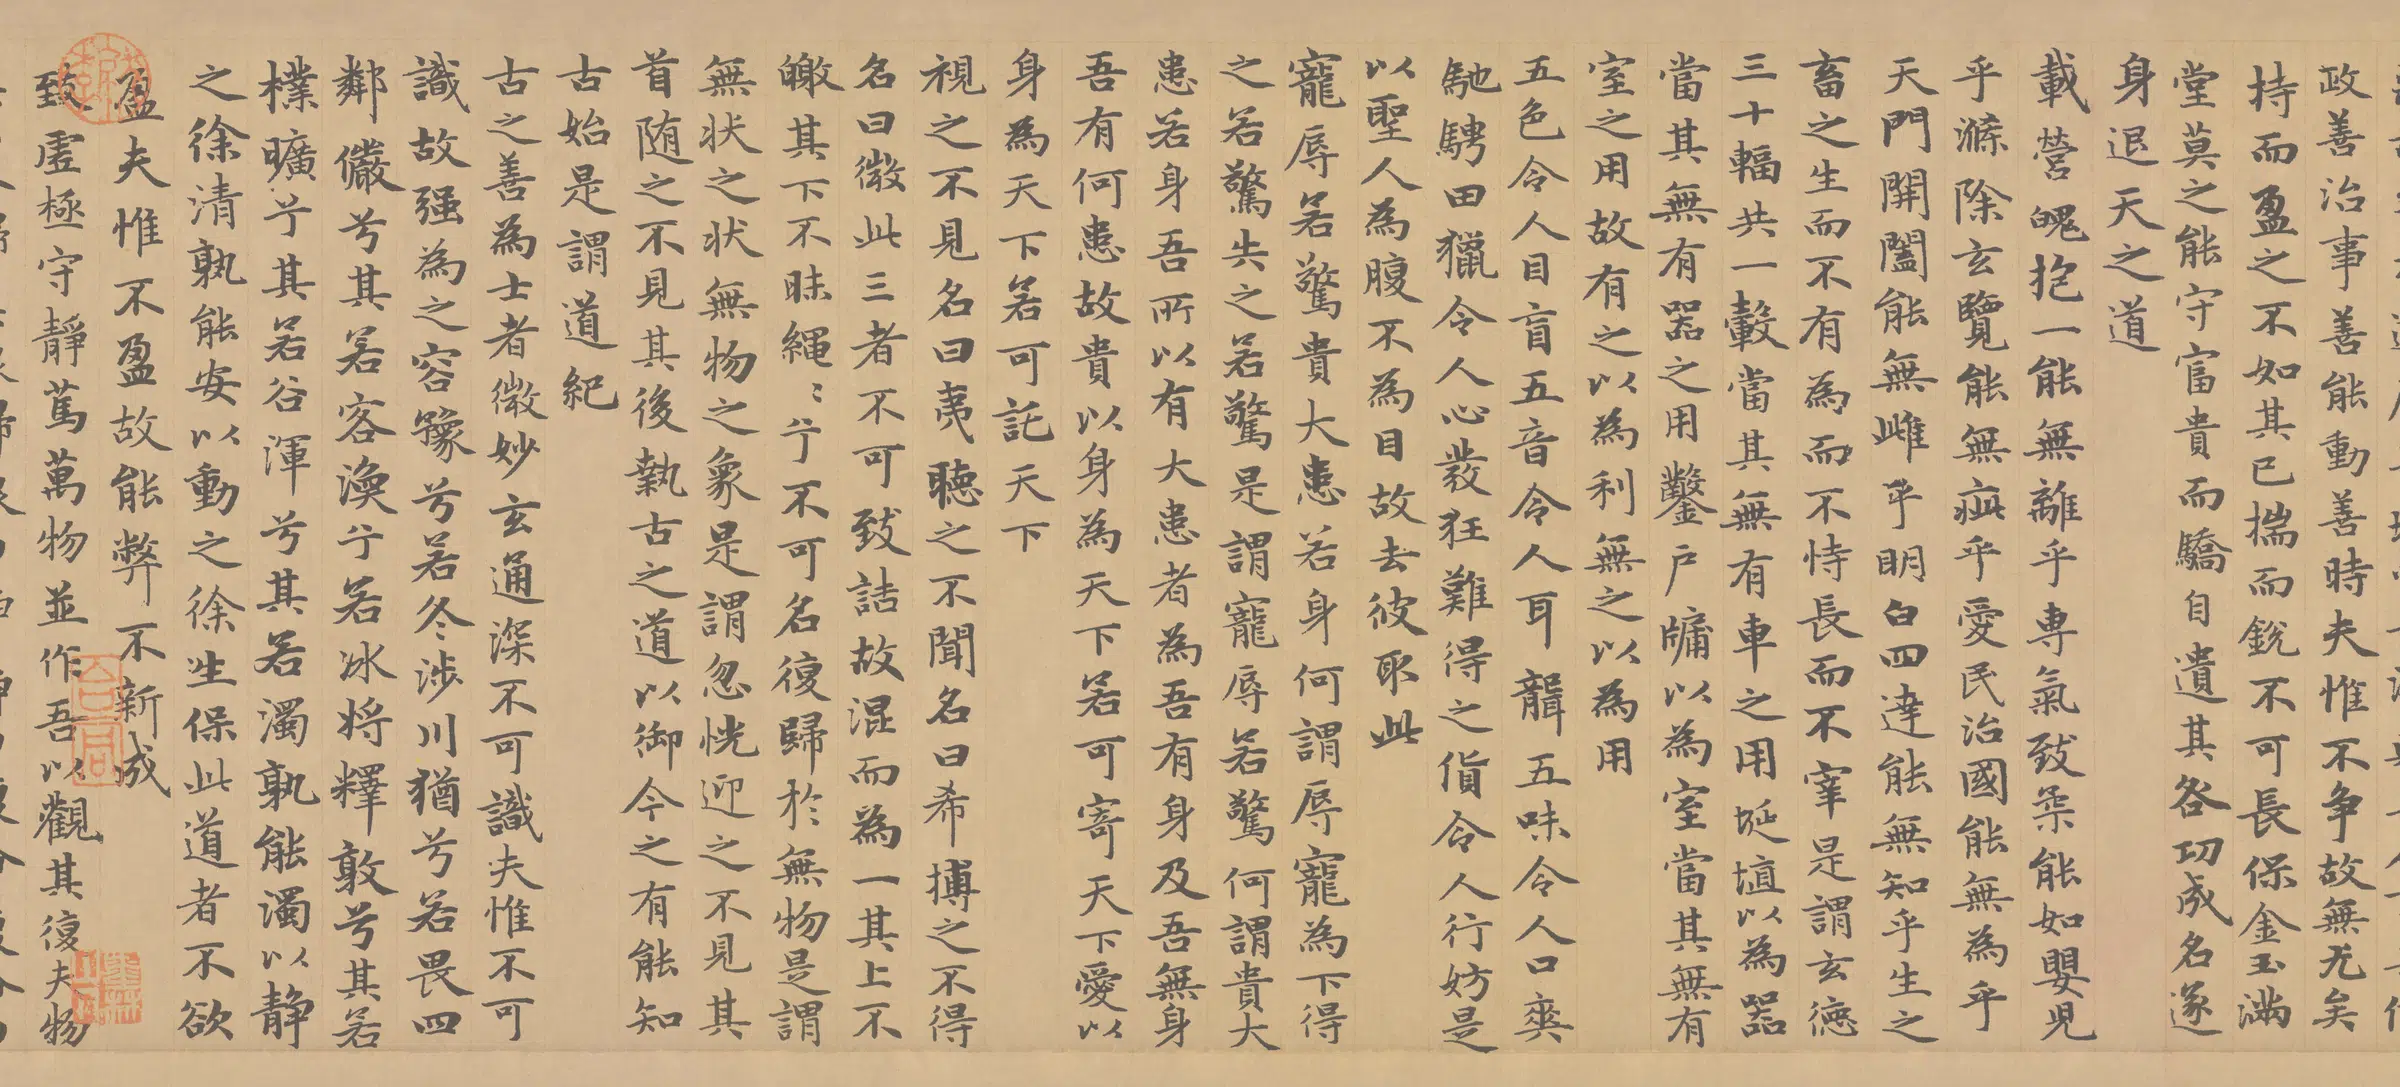 政善治事善能動善時夫惟不争故無尤矣
持而盈之不如其已揣而銳不可長保金玉滿
堂莫之能守富貴而驕自遺其咎功成名遂
身退天之道
載營魄抱一能無離乎専氣致柔能如嬰兒
乎滌除玄覽能無疵乎愛民治國能無為乎
天門開闔能無雌乎明白四達能無知乎生之
畜之生而不有為而不恃長而不宰是謂玄德
三十輻共一轂當其無有車之用埏埴以為器
當其無有器之用鑿戶牖以為室當其無有
室之用故有之以為利無之以為用
五色令人目盲五音令人耳聾五味令人口爽
馳騁田獵令人心發狂難得之貨令人行妨是
以聖人為腹不為目故去彼取此
寵辱若驚貴大患若身何謂辱寵為下得
之若驚失之若驚是謂寵辱若驚何謂貴大
患若身吾所以有大患者為吾有身及吾無身
吾有何患故貴以身為天下若可寄天下愛以
身為天下若可託天下
視之不見名曰夷聽之不聞名曰希搏之不得
名曰微此三者不可致詰故混而為一其上不
皦其下不昧繩〻兮不可名復歸於無物是謂
無状之状無物之象是謂忽恍迎之不見其
首随之不見其後執古之道以御今之有能知
古始是謂道紀
古之善為士者微妙玄通深不可識夫惟不可
識故强為之容豫兮若冬涉川猶兮若畏四
鄰儼兮其若客渙兮若冰将釋敦兮其若
樸曠兮其若谷渾兮其若濁孰能濁以静
之徐清孰能安以動之徐生保此道者不欲
盈夫惟不盈故能弊不新成
致虚極守靜篤萬物並作吾以觀其復夫物